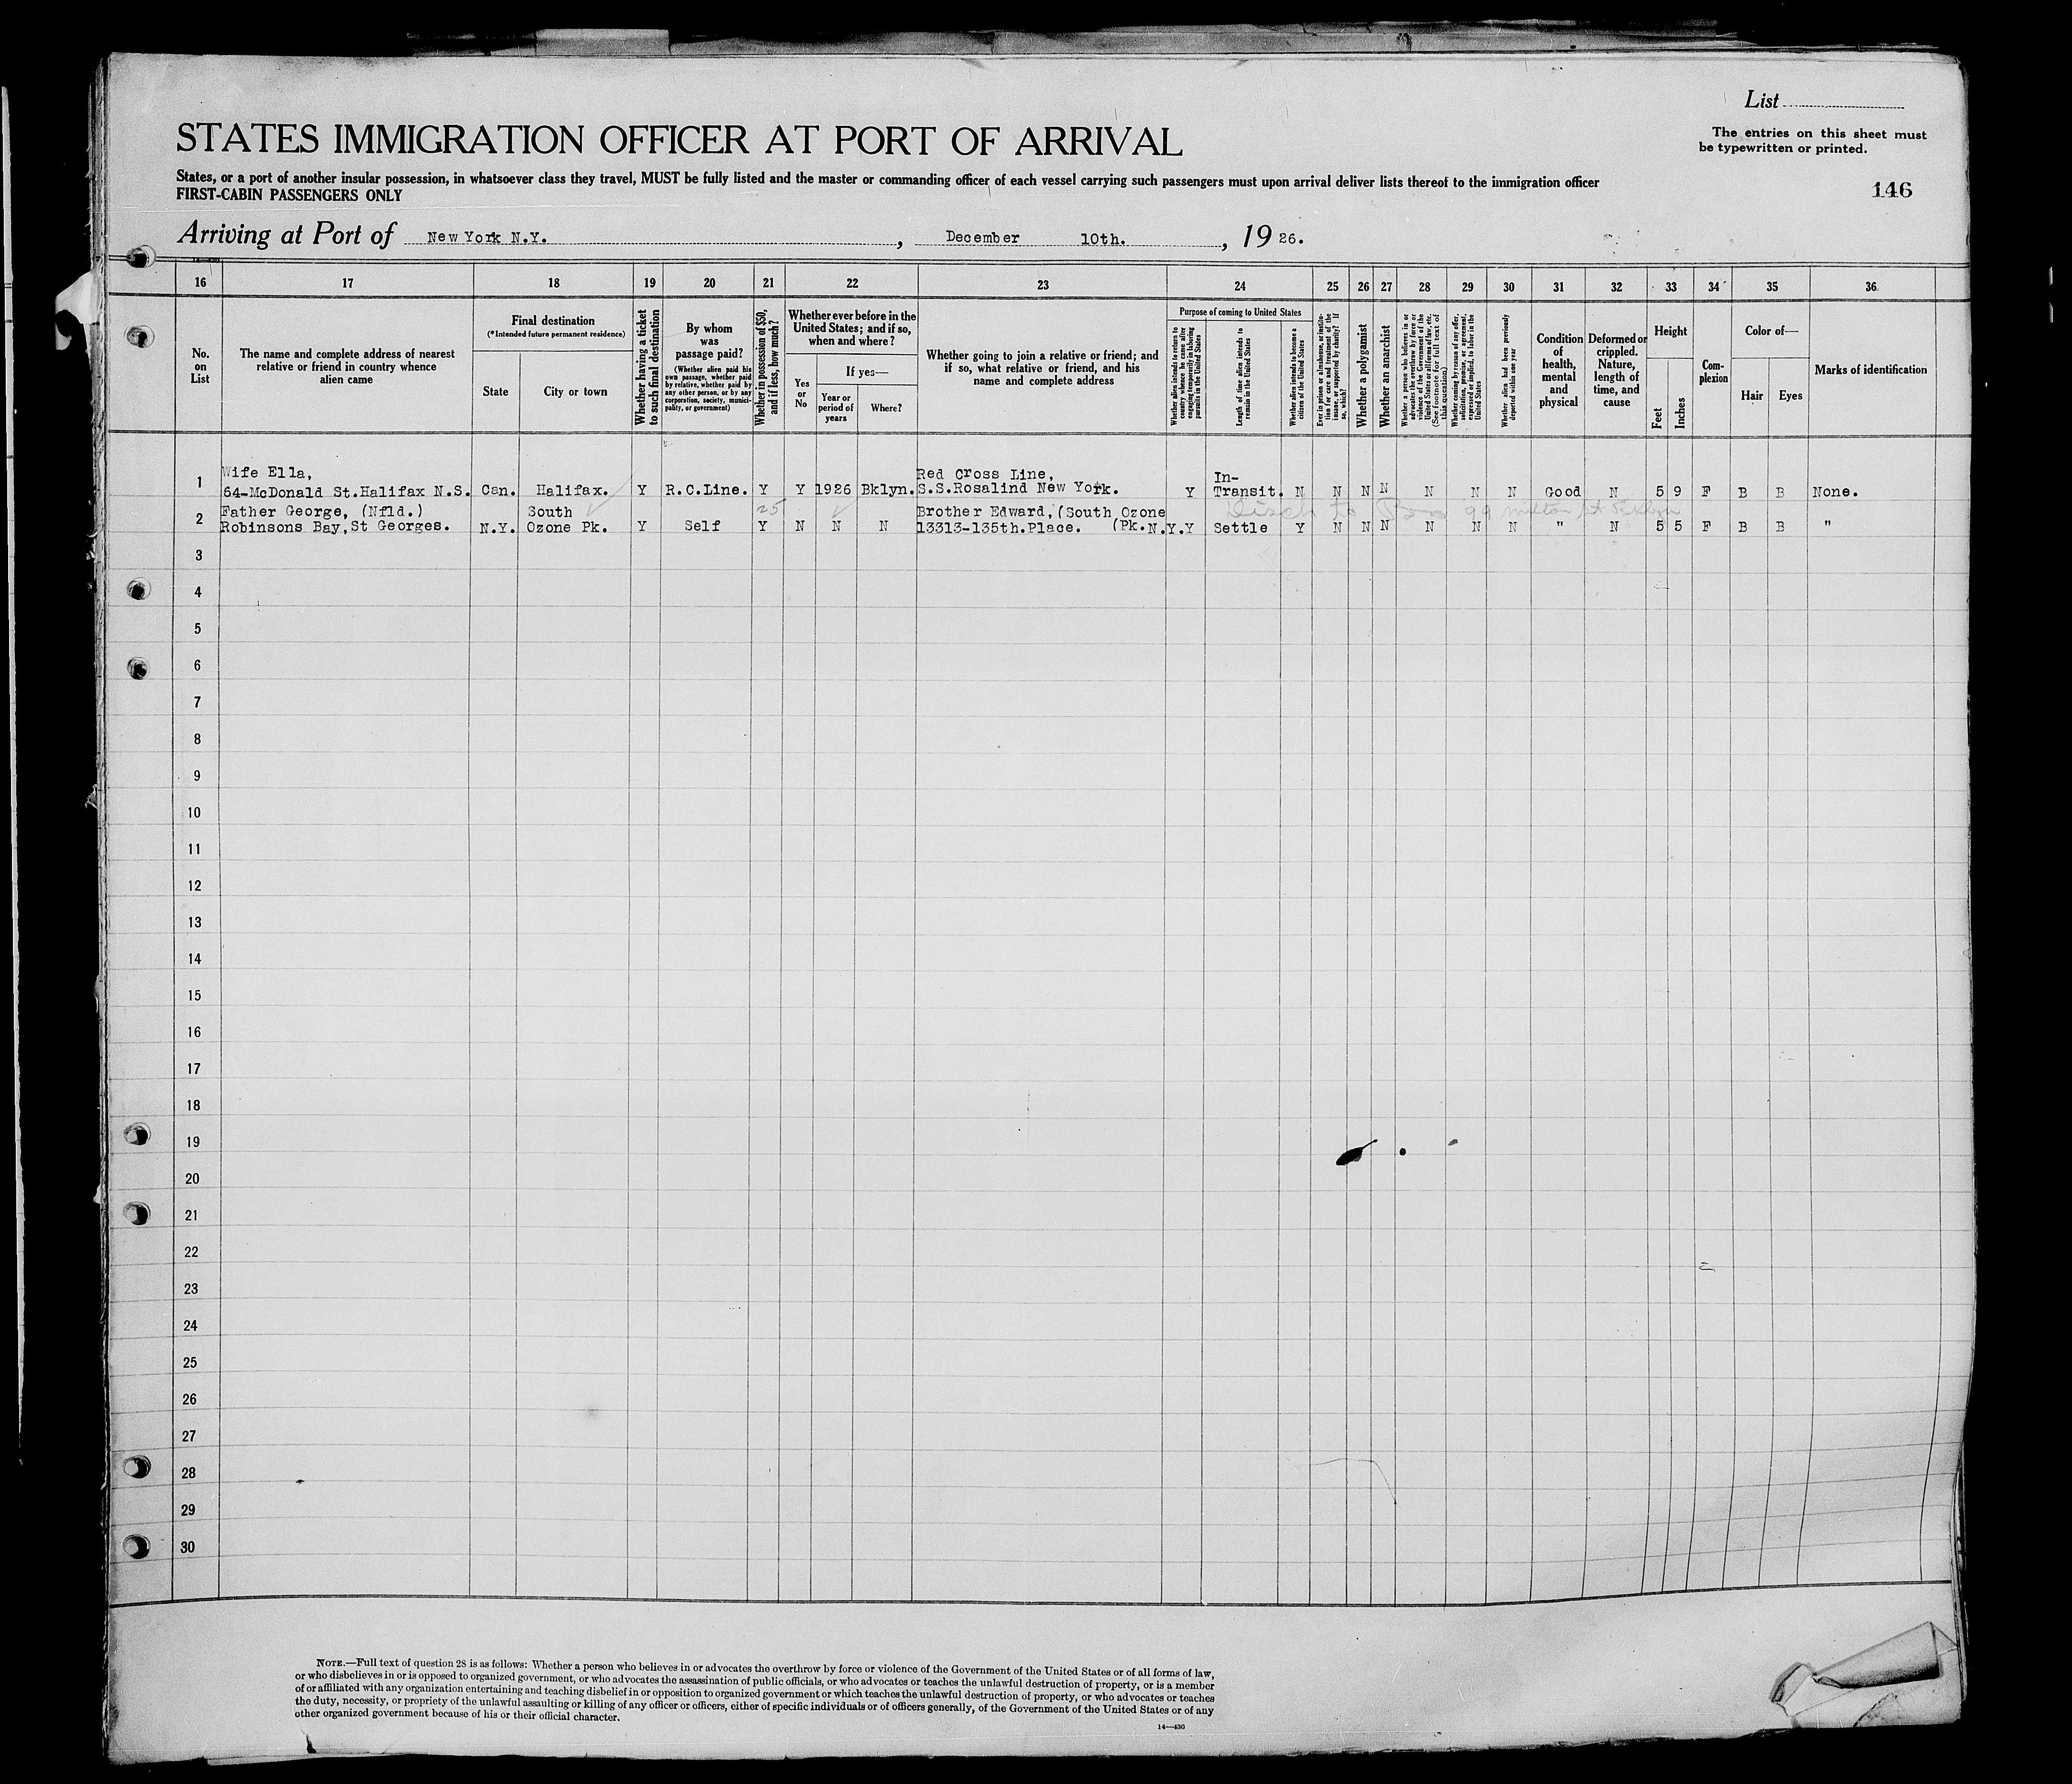 List
STATES IMMIGRATION OFFICER AT PORT OF ARRIVAL
The entries on this sheet must
be typewritten or printed.
States, or a port of another insular possession, in whatsoever class they travel, MUST be fully listed and the master or commanding officer of each vessel carrying such passengers must upon arrival deliver lists thereof to the immigration officer
FIRST-CABIN PASSENGERS ONLY
146
Arriving at Port of New York N.Y., December 10th., 1926.
16 17 18 19 20 21 22 23 24 25 26 27 28 29 30 31 32 33 34 35 36
No. on List
The name and complete address of nearest
relative or friend in country whence
alien came
Final destination
(*Intended future permanent residence)
State
City or town
Whether having a ticket
to such final destination
By whom
was
passage paid?
(Whether alien paid his
own passage, whether paid
by relative, whether paid by
any other person, or by any
corporation, society, munici-
pality, or government)
Whether in possession of $50,
and if less, how much?
Whether ever before in the
United States; and if so,
when and where?
Yes
or
No
If yes—
Year or
period of
years
Where?
Whether going to join a relative or friend; and
if so, what relative or friend, and his
name and complete address
Purpose of coming to United States
Whether alien intends to return to
country whence he came after
engaging temporarily in laboring
pursuits in the United States
Length of time alien intends to
remain in the United States
Whether alien intends to become a
citizen of the United States
Ever in prison or almshouse, or institu-
tion for care and treatment of the
insane, or supported by charity? If
so, which?
Whether a polygamist
Whether an anarchist
Whether a person who believes in or
advocates the overthrow by force or
violence of the Government of the
United States or all forms of law, etc.
(See footnote for full text of
this question)
Whether coming by reason of any offer,
solicitation, promise, or agreement,
expressed or implied, to labor in the
United States
Whether alien had been previously
deported within one year
Condition
of
health,
mental
and
physical
Deformed or
crippled.
Nature,
length of
time, and
cause
Height
Feet
Inches
Com-
plexion
Color of—
Hair
Eyes
Marks of identification
Wife Ella, Red Cross Line, In-
1 64-McDonald St.Halifax N.S. Can. Halifax. Y R.C.Line. Y Y 1926 Bklyn. S.S.Rosalind New York. Y Transit. N N N N N N N Good N 5 9 F B B None.
Father George, (Nfld.) South 25 Brother Edward, (South Ozone
2 Robinsons Bay,St Georges. N.Y. Ozone Pk. Y Self Y N N N 13313-135th.Place. (Pk.N.Y. Y Settle Y N N N N N N " N 5 5 F B B "
3
4
5
6
7
8
9
10
11
12
13
14
15
16
17
18
19
20
21
22
23
24
25
26
27
28
29
30
NOTE.—Full text of question 28 is as follows: Whether a person who believes in or advocates the overthrow by force or violence of the Government of the United States or of all forms of law,
or who disbelieves in or is opposed to organized government, or who advocates the assassination of public officials, or who advocates or teaches the unlawful destruction of property, or is a member
of or affiliated with any organization entertaining and teaching disbelief in or opposition to organized government or which teaches the unlawful destruction of property, or who advocates or teaches
the duty, necessity, or propriety of the unlawful assaulting or killing of any officer or officers, either of specific individuals or of officers generally, of the Government of the United States or of any
other organized government because of his or their official character.
14—430